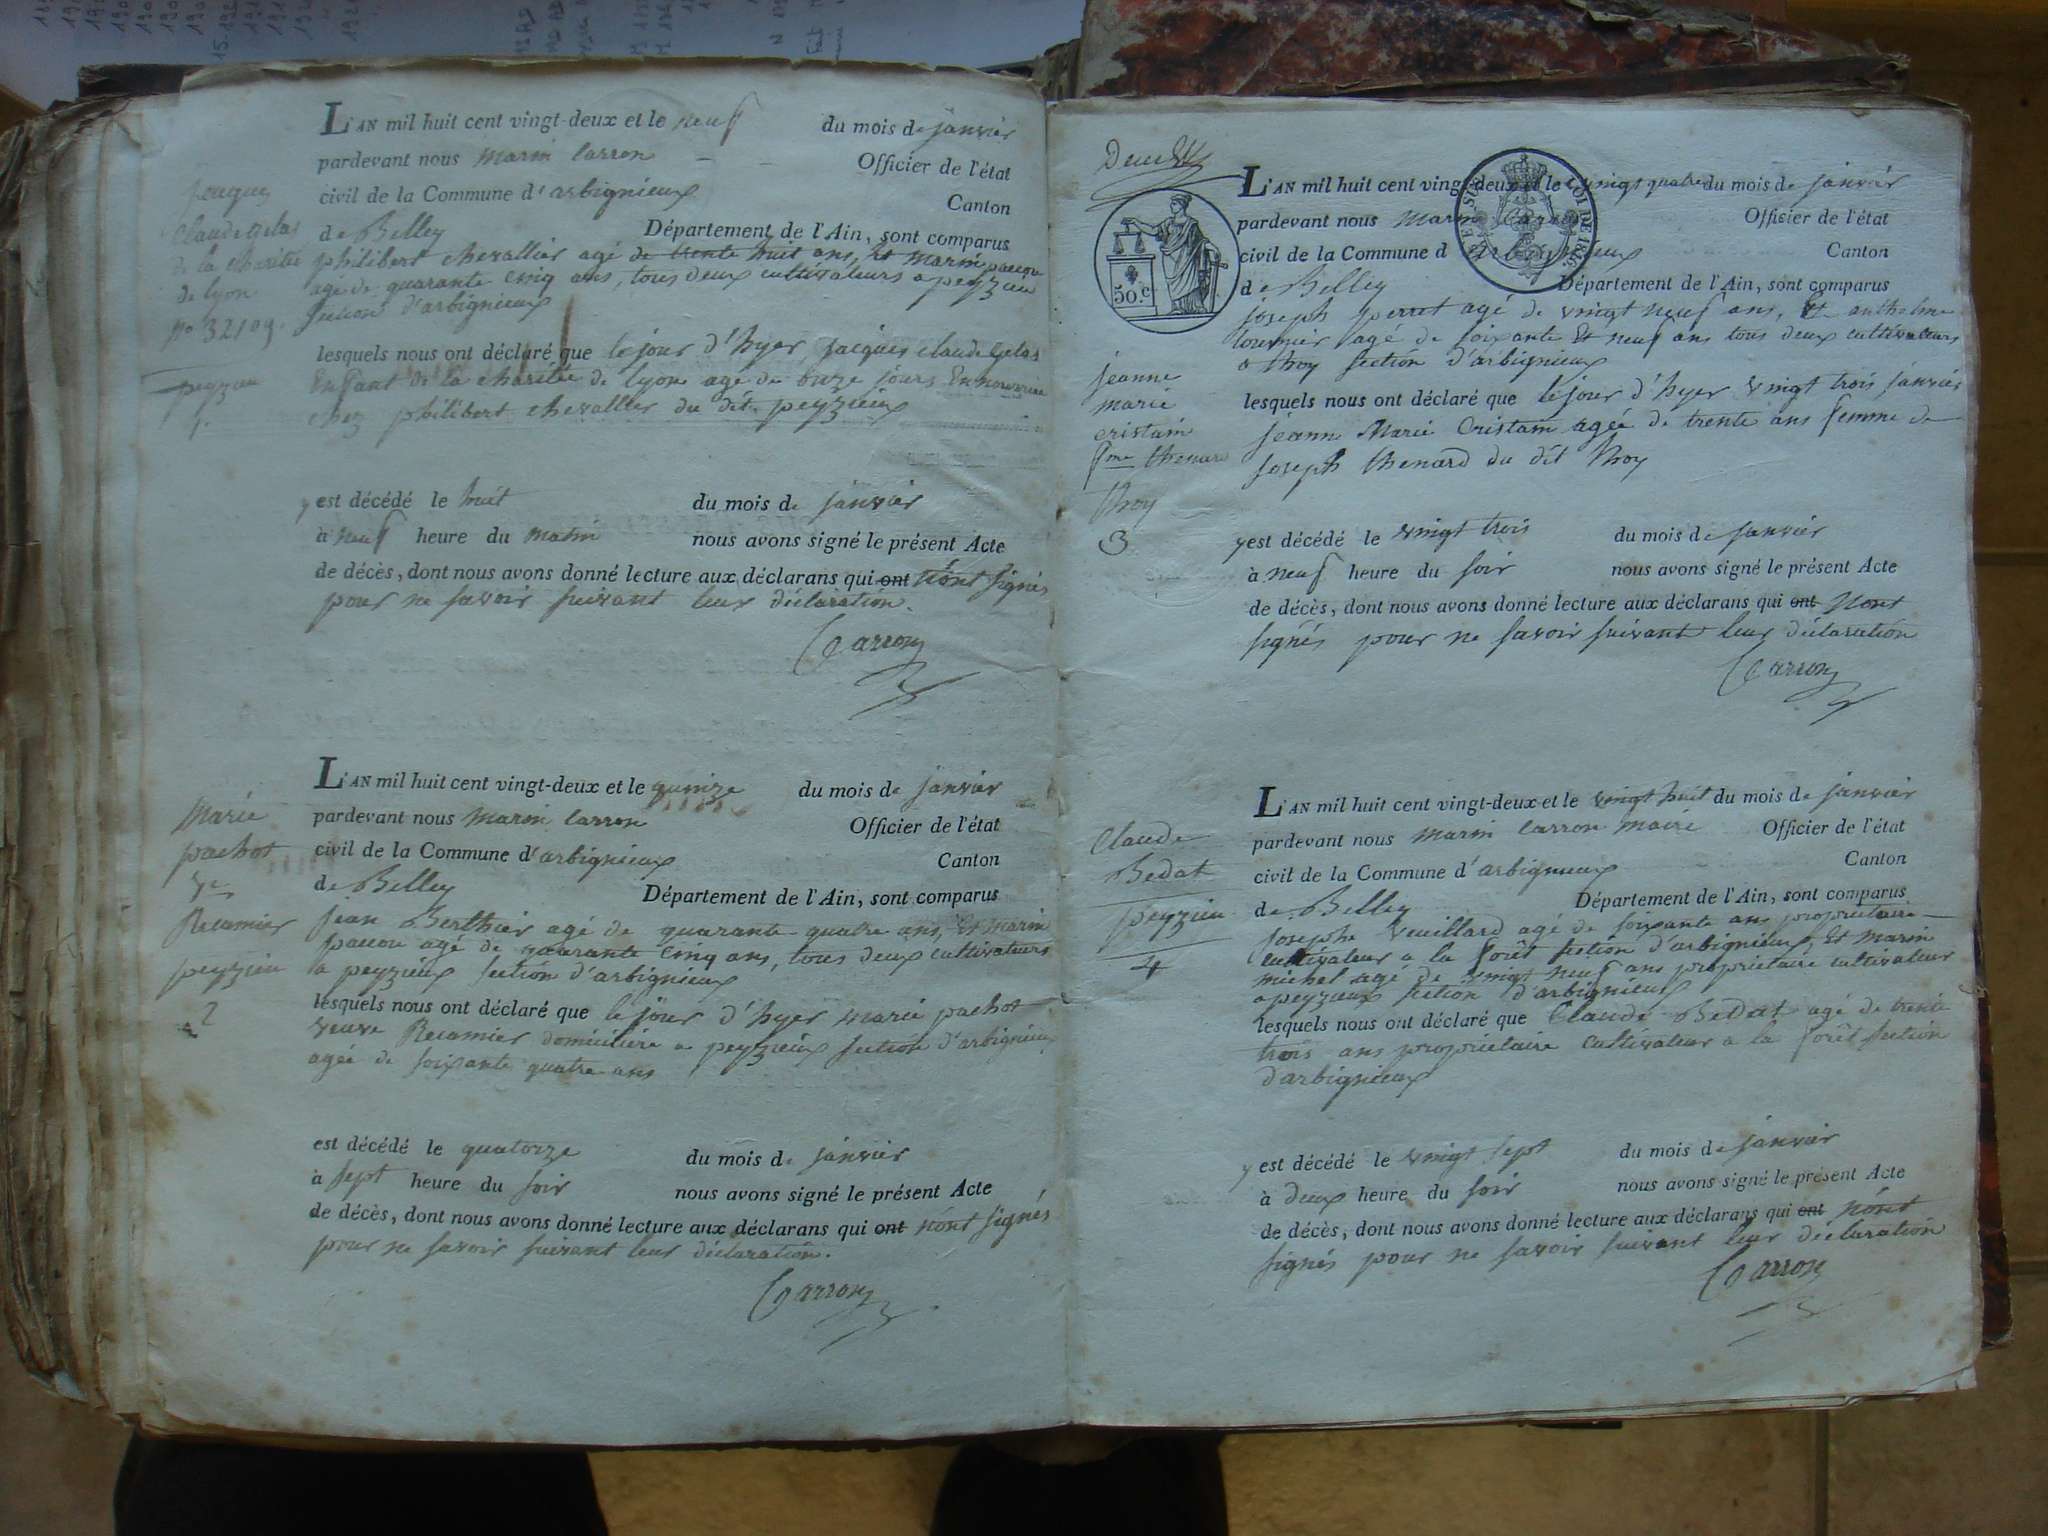 L'AN mil huit cent vingt-deux et le neuf du mois de janvier
pardevant nous marin Carron Officier de l'état
civil de la Commune d'arbignieux
Canton
de Belley Département de l'Ain, sont comparus
philibert chevallier agé de trente huit ans, Et marin pacou
agé de quarante cinq ans, tous deux cultivateurs a peyzieu
section d'arbignieux
lesquels nous ont déclaré que le jour d'hyer, jacques claude gelas
Enfant de la charitée de lyon agé de onze jours En nourrice
chez philibert chevallier du dit peyzieux
y est décédé le huit du mois de janvier
à neuf heure du matin nous avons signé le présent Acte
de décès, dont nous avons donné lecture aux déclarans qui ont n'ont signés
pour ne savoir suivant leur déclaration.
Carron
jacques
Claude gelas
de la charitée
de lyon
no 32109.
peyzieu
1.
L'AN mil huit cent vingt-deux et le quinze du mois de janvier
pardevant nous marin Carron Officier de l'état
civil de la Commune d'arbignieux
Canton
de Belley Département de l'Ain, sont comparus
jean Berthier agé de quarante quatre ans, Et marin
pacou agé de quarante cinq ans, tous deux cultivateurs
a peyzieux section d'arbignieux
lesquels nous ont déclaré que le jour d'hyer marie pachot
veuve Recamier domiciliée a peyzieux section d'arbignieux
agée de soixante quatre ans
est décédé le quatorze du mois de janvier
à sept heure du soir nous avons signé le présent Acte
de décès, dont nous avons donné lecture aux déclarans qui ont n'ont signés
pour ne savoir suivant leur déclaration.
Carron
Marie
pachot
ve
Recamier
peyzieu
2
L'AN mil huit cent vingt-deux et le vingt quatre du mois de janvier
pardevant nous marin Carron Officier de l'état
civil de la Commune d'arbignieux
Canton
de Belley Département de l'Ain, sont comparus
joseph perret agé de vingt neuf ans, Et anthelme
tournier agé de soixante Et neuf ans tous deux cultivateurs
a thoy section d'arbignieux
lesquels nous ont déclaré que le jour d'hyer vingt trois janvier
jeanne Marie Cristain agée de trente ans femme de
joseph thenard du dit thoy
y est décédé le vingt trois du mois de janvier
à neuf heure du soir nous avons signé le présent Acte
de décès, dont nous avons donné lecture aux déclarans qui ont n'ont
signés pour ne savoir suivant leur déclaration
Carron
50.c
LOI DE 1816
jeanne
marie
cristain
fme thenard
thoy
3
L'AN mil huit cent vingt-deux et le vingt huit du mois de janvier
pardevant nous marin Carron maire Officier de l'état
civil de la Commune d'arbignieux
Canton
de Belley Département de l'Ain, sont comparus
Josephe veuillard agé de soixante ans propriétaire
cultivateur a la forêt section d'arbignieux, Et marin
michel agé de vingt neuf ans propriétaire cultivateur
a peyzieux section d'arbignieux
lesquels nous ont déclaré que Claude Bedat agé de trente
trois ans propriétaire cultivateur a la forêt section
d'arbignieux
y est décédé le vingt sept du mois de janvier
à deux heure du soir nous avons signé le présent Acte
de décès, dont nous avons donné lecture aux déclarans qui ont n'ont
signés pour ne savoir suivant leur déclaration
Carron
Claude
Bedat
peyzieu
4